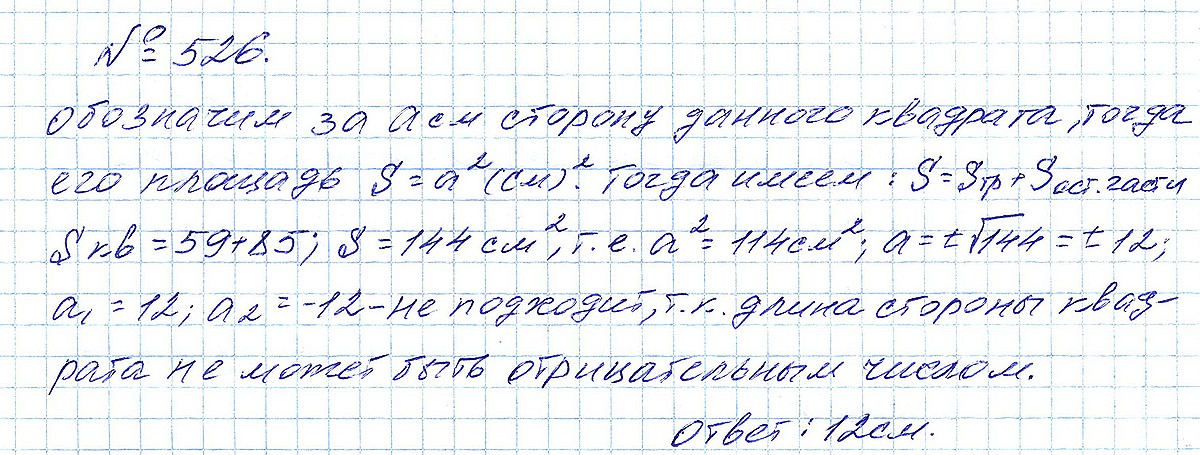 № 526.
Обозначим за a см сторону данного квадрата, тогда
его площадь S = a² (см)². Тогда имеем: S = Sтр + Sост.части
Sкв = 59+85; S = 144 см², т.е. a² = 114 см²; a = ±√144 = ±12;
a₁ = 12; a₂ = -12 - не подходит, т.к. длина стороны квад-
рата не может быть отрицательным числом.
Ответ: 12 см.